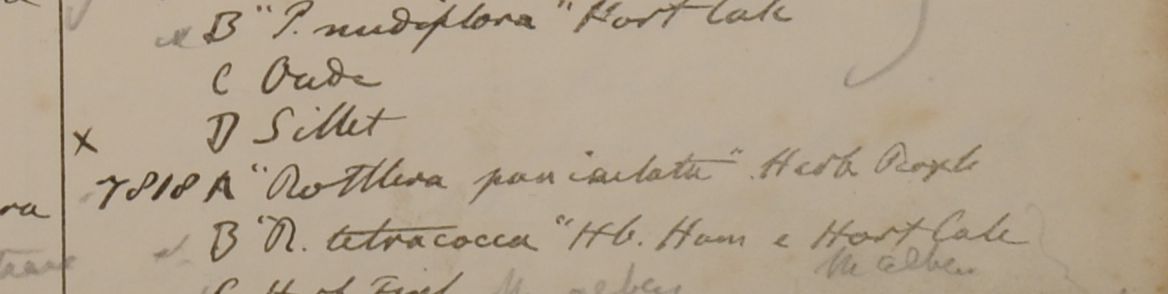 B "P. nudiflora" Hort Calc
C Oude
D Sillet
x
7818 A "Rottlera paniculata" Herb Roxb
ra
B "R. tetracocca" Hb. Ham e Hort Calc
M albus
C H
M albus